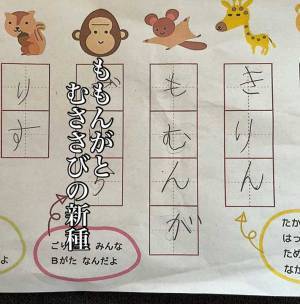 きりん
もむんが
ももんがと
むささびの新種
りす
たか
はっ
ため
なか
ごり
みんな
Bがた なんだよ
よ